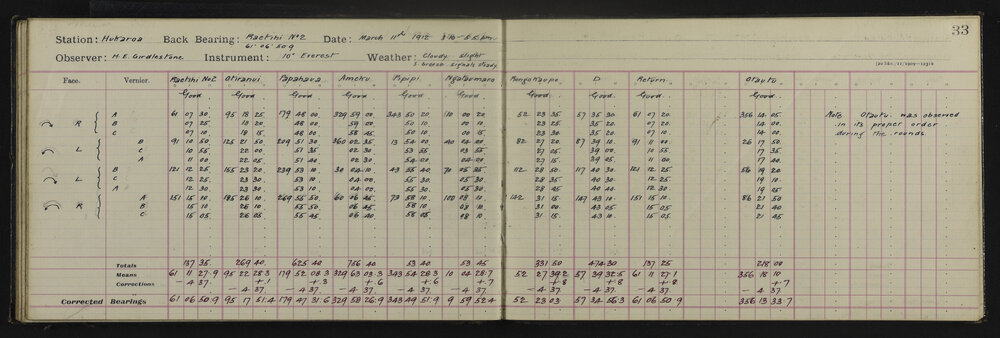 33
Station: Hukaroa Back Bearing: Raetihi No 2 Date: March 11th 1912 8-10 - 5-5 p.m.
61·06·50·9
Observer: H.E. Girdlestone Instrument: 10" Everest Weather: Cloudy slight
S. breeze signals steady
Face. Vernier. Raetihi No 2 Otiranui Papahaua Ameku Pipipi Ngataumaro Rangataupe D Return Otautu
Good Good Good Good Good Good Good Good Good Good
R A 61 07 30 95 18 25 179 48 00 329 59 00 343 50 20 10 00 20 52 23 35 57 35 30 61 07 20 356 14 05
B 07 25 18 20 48 00 59 00 50 10 23 25 35 20 07 20 14 00
C 07 10 18 15 48 00 58 45 50 10 00 15 23 20 35 20 07 10 14 00
L B 91 10 50 125 21 50 209 51 30 360 02 35 13 54 00 40 04 00 82 27 20 87 39 10 91 11 00 26 17 50
C 10 55 22 00 51 35 02 30 53 55 03 55 27 05 39 00 10 55 17 35
A 11 00 22 05 51 40 02 30 54 00 04 00 27 15 39 05 11 00 17 40
L B 121 12 25 155 23 20 239 53 10 30 04 10 43 55 40 70 05 35 112 28 50 117 40 30 121 12 25 56 19 20
C 12 25 23 30 53 10 04 00 55 30 28 35 40 30 12 25 19 10
A 12 30 23 30 53 10 04 00 55 30 05 30 28 45 40 40 12 30 19 25
R A 151 15 10 185 26 10 269 55 50 60 06 45 73 58 10 100 08 10 142 31 15 147 43 10 151 15 10 86 21 50
B 15 10 26 10 55 50 06 45 58 10 31 00 43 05 15 05 21 40
C 15 05 26 05 55 45 06 40 58 05 08 10 31 15 43 10 15 05 21 45
Note Otautu was observed
in its proper order
during the rounds.
Totals 137 35 269 40 625 40 756 40 53 40 53 45 331 50 474 30 137 25 218 00
Means 61 11 27·9 95 22 28·3 179 52 08·3 329 63 03·3 343 54 28·3 10 04 28·7 52 27 39·2 57 39 32·5 61 11 27·1 356 18 10
Corrections +·1 +·3 +·6 +·6 +·7 +·8 +·8 +·8 +·7
- 4 37 - 4 37 - 4 37 - 4 37 - 4 37 - 4 37 - 4 37 - 4 37 - 4 37 - 4 37
Corrected Bearings 61 06 50·9 95 17 51·4 179 47 31·6 329 58 26·9 343 49 51·9 9 59 52·4 52 23 03 57 34 56·3 61 06 50·9 356 13 33·7